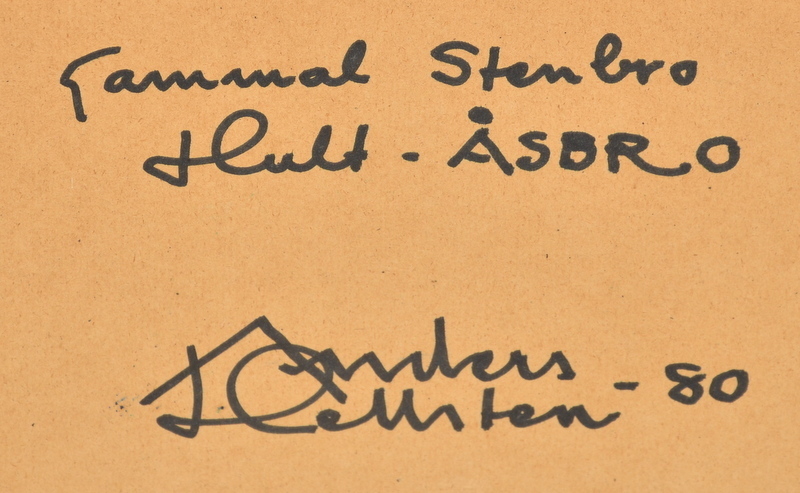 Gammal Stenbro
Hult - ÅSBRO
Anders - 80
Hellsten